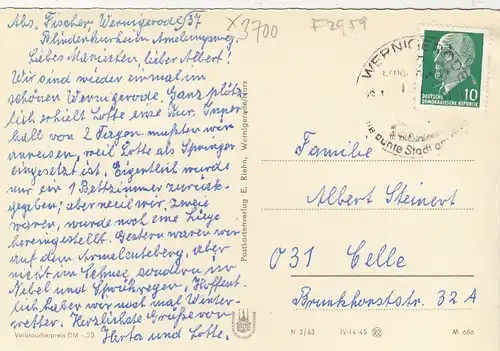 Abs. Fischer Wernigerode/37
Blindenkurheim Amelungsweg.
x3700
F2959
Liebes Mariechen, lieber Albert!
Wir sind wieder einmal im
schönen Wernigerode. Ganz plötz
lich erhielt Lotte eine Kur. Inner
halb von 2 Tagen mußten wir
anreisen, weil Lotte als Springer
eingesetzt ist. Eigentlich wurde
nur ein 1 Bettzimmer zurück-
gegeben; aber weil wir zweie
waren, wurde noch eine Liege
hereingestellt. Gestern waren wir
auf dem Armeleuteberg, aber
nicht im Schnee sondern in
Nebel und Sprühregen. Hoffent
lich haben wir noch mal Winter-
wetter. Herzlichste Grüße von
Herta und Lotte.
Verbraucherpreis DM -,20
Postkartenverlag E. Riehn, Wernigerode/Harz
WERNIGERODE
die bunte Stadt am
10
DEUTSCHE
DEMOKRATISCHE REPUBLIK
Familie
Albert Steinert
031 Celle
Brunkhorststr. 32 A
N 3/63 IV-14-45 M 686